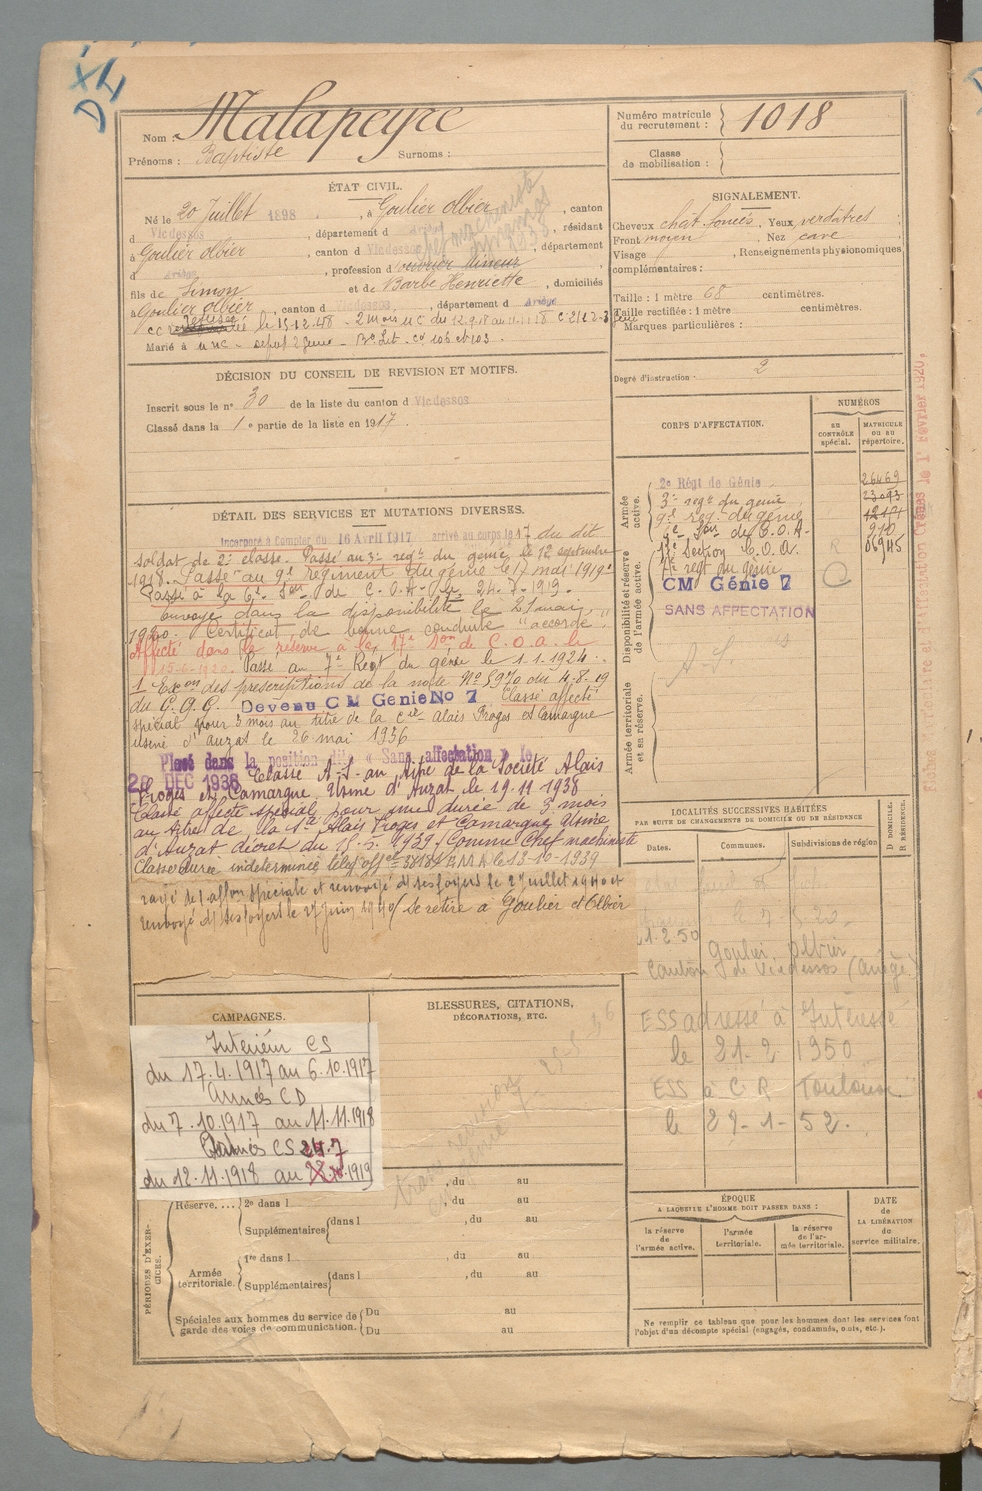 Nom : Malapeyre
Prénoms : Baptiste Surnoms :
Numéro matricule du recrutement : 1018
Classe de mobilisation :
ÉTAT CIVIL.
Né le 20 Juillet 1898, à Goulier Olbier, canton
d Vicdessos, département d Ariège, résidant
à Goulier Olbier, canton d Vicdessos, département
d Ariège, profession d ouvrier mineur
fils de Simon et de Barbe Henriette, domiciliés
à Goulier Olbier, canton d Vicdessos, département d Ariège
le 15-12-48 - 2 mois UC du 12.9.18 au 11.11.18
Marié à
SIGNALEMENT.
Cheveux chat. foncés, Yeux verdâtres
Front moyen, Nez cave
Visage, Renseignements physionomiques
complémentaires :
Taille : 1 mètre 68 centimètres.
Taille rectifiée : 1 mètre centimètres.
Marques particulières :
Degré d'instruction : 2
DÉCISION DU CONSEIL DE REVISION ET MOTIFS.
Inscrit sous le n° 30 de la liste du canton d Vicdessos
Classé dans la 1 e partie de la liste en 1917.
CORPS D'AFFECTATION.
NUMÉROS
AU CONTRÔLE spécial.
MATRICULE OU AU répertoire.
Armée active.
2e Régt de Génie
3e regt du génie
9e reg. du génie
de C.O.A.
17e Section C.O.A.
7e regt du génie
CM Génie 7
SANS AFFECTATION
A-S
26469
23093
910
Disponibilité et réserve de l'armée active.
Armée territoriale et sa réserve.
DÉTAIL DES SERVICES ET MUTATIONS DIVERSES.
Incorporé à Compter du 16 Avril 1917 arrivé au corps le 17 du dit
soldat de 2e classe. Passé au 3e regt du genie le 12 septembre
1918. Passé au 9e régiment du génie le 17 mai 1919
Passé à la 6e Son de C.O.A. le 24.7.1919.
Envoyé dans la disponibilité le 21 mai
1920. Certificat de bonne conduite "accordé"
Affecté dans la réserve à la 17e Son de C.O.A. le
15-6-1920. Passé au 7e Regt du génie le 1.1.1924.
1 Exon des prescriptions de la note No 5970 du 4.8.19
du G.Q.G. Devenu C M Genie No 7 Classé affecté
spécial pour 3 mois au titre de la Cie Alais Froges et Camargue
Usine d'Auzat le 26 mai 1936
Placé dans la position dite « Sans affectation » le
28 DEC 1938 Classé A.S. au titre de la Société Alais
Froges et Camargue, Usine d'Auzat, le 19.11.1938
Classé affecté spécial pour une durée de 3 mois
au titre de la Sté Alais Froges et Camargue Usine
d'Auzat décret du Comme Chef machiniste
Classé durée indeterminée E.M.A le 13-10-1939
rayé de l'affon spéciale et renvoyé ds ses foyers le 27 juillet 1940 et
renvoyé ds ses foyers le 27 juin 1940 / Se retire à Goulier et Olbier
LOCALITÉS SUCCESSIVES HABITÉES
PAR SUITE DE CHANGEMENTS DE DOMICILE OU DE RÉSIDENCE
Dates. Communes. Subdivisions de région
D DOMICILE. R RÉSIDENCE.
Goulier, Olbier
Canton de Vicdessos (Ariège)
ESS adressé à Intéressé
le 21-2 1950
ESS à C R Toulouse
le 29-1-52.
CAMPAGNES.
Intérieur CS
du 17.4.1917 au 6.10.1917
Armées CD
du 7.10.1917 au 11.11.1918
Armées CS 24.7
du 12.11.1918 au 1919
BLESSURES, CITATIONS, DÉCORATIONS, ETC.
PÉRIODES D'EXERCICES.
Réserve.... 2e dans l, du au
Supplémentaires dans l, du au
Armée territoriale. 1re dans l, du au
Supplémentaires dans l, du au
Spéciales aux hommes du service de Du au
garde des voies de communication. Du au
ÉPOQUE
A LAQUELLE L'HOMME DOIT PASSER DANS :
la réserve de l'armée active.
l'armée territoriale.
la réserve de l'armée territoriale.
DATE de LA LIBÉRATION du service militaire.
Ne remplir ce tableau que pour les hommes dont les services font
l'objet d'un décompte spécial (engagés, condamnés, omis, etc.).